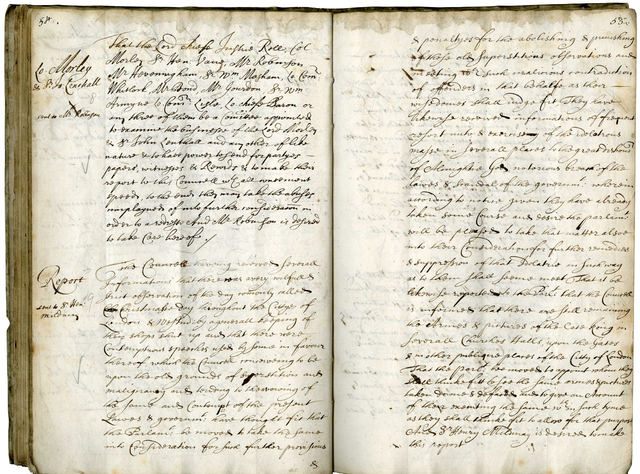 54.
Lo: Morley
& Sr Jo Lenthall
sent to Mr Robinson
That the Lord Chiefe Justice Roll. Col
Morley Sr Hen Vane, Mr Robinson
Mr Heveningham & Wm Masham, Lo Com
Whitlock, Mr Bond, Mr Gourdon & Wm
Armyne Lo Com Lisle, Lo Chiefe Baron or
any three of them be a Comittee appointed
to examine the businesse of the Lord Morley
& Sr John Lenthall and any other of like
nature & to have power to send for partyes
papers, witnesses & Records & to make their
report to this Councell wth all convenient
speede to the end they may take the abuses
into further consideration in
order to a redresse And Mr Robinson is desired
to take Care hereof
Report
sent to Sr Hen
Mildmay
The Councell having received severall
Informations that there was a very wilfull &
strict observation of the day comonly called
Christmasse day throughout the Cittye of
London & Westmr by a generall keeping of
they shops shut up and that there were
Contemptuous speeches used by some in favour
thereof which the Councell conceiveing to be
upon the old grounds of superstition and
malignancy and tending to the avowing of
the same and Contempt of the present
Lawes & governmt have thought fit that
the Parlamt be moved to take the same
into Consideration for such further provisions
&
53.
& penaltyes for the abolishing & punishing
of those old superstitious observations and
meeting wth such malicious contradiction
of offenders in that behalfe as their
wisedomes shall judge fit They have
likewise received informations of frequent
resort unto & exercise of the idolatrous
masse in severall places to the great dishonor
of Almightie God, notorious breach of the
lawes & scandal of the governmt wherein
according to notice given they have already
taken some Course and desire the parlamt
will be pleased to take that matter alsoe
into their Consideration for further remedies
& suppression of that Idolatrie in such way
as to them shall seeme meet That it be
likewise reported to the Parlt that the Councell
is informed that there are still remaining
the Armes & pictures of the late King in
severall Churches Halls, upon the Gates
& in other publique places of the City of London
That the parlt bee moved to appoint whom they
shall thinke fit to see the same armes & pictures
taken downe & defaced and to give an Account
of their executing the same wthin such tyme
as they shall thinke fit to allow for that purpose
And Sr Henry Mildmay is desired to make
this report